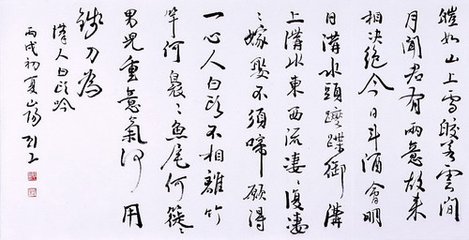 皚如山上雪皎若雲間
月聞君有兩意故来
相决絶今日斗酒會明
日溝水頭躞蹀御溝
上溝水東西流凄〻復凄
〻嫁娶不須啼願得
一心人白頭不相離竹
竿何裊〻魚尾何簁〻
男兒重意氣何用
錢刀為
漢人白頭吟
丙戌初夏山陽